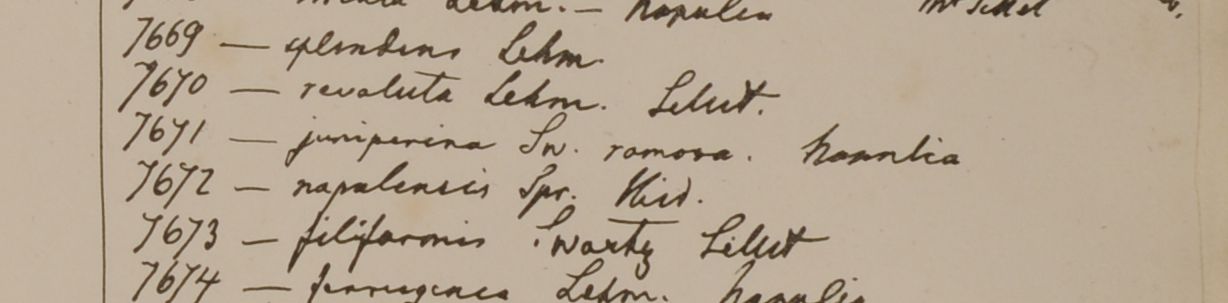 Lehm. – Napalia
7669 — splendens Lehm.
7670 — revoluta Lehm. Silhet.
7671 — juniperina Sw. ramosa. Napalia
7672 — napalensis Spr. Ibid.
7673 — filiformis Swartz Silhet
7674 — ferruginea Lehm. Napalia